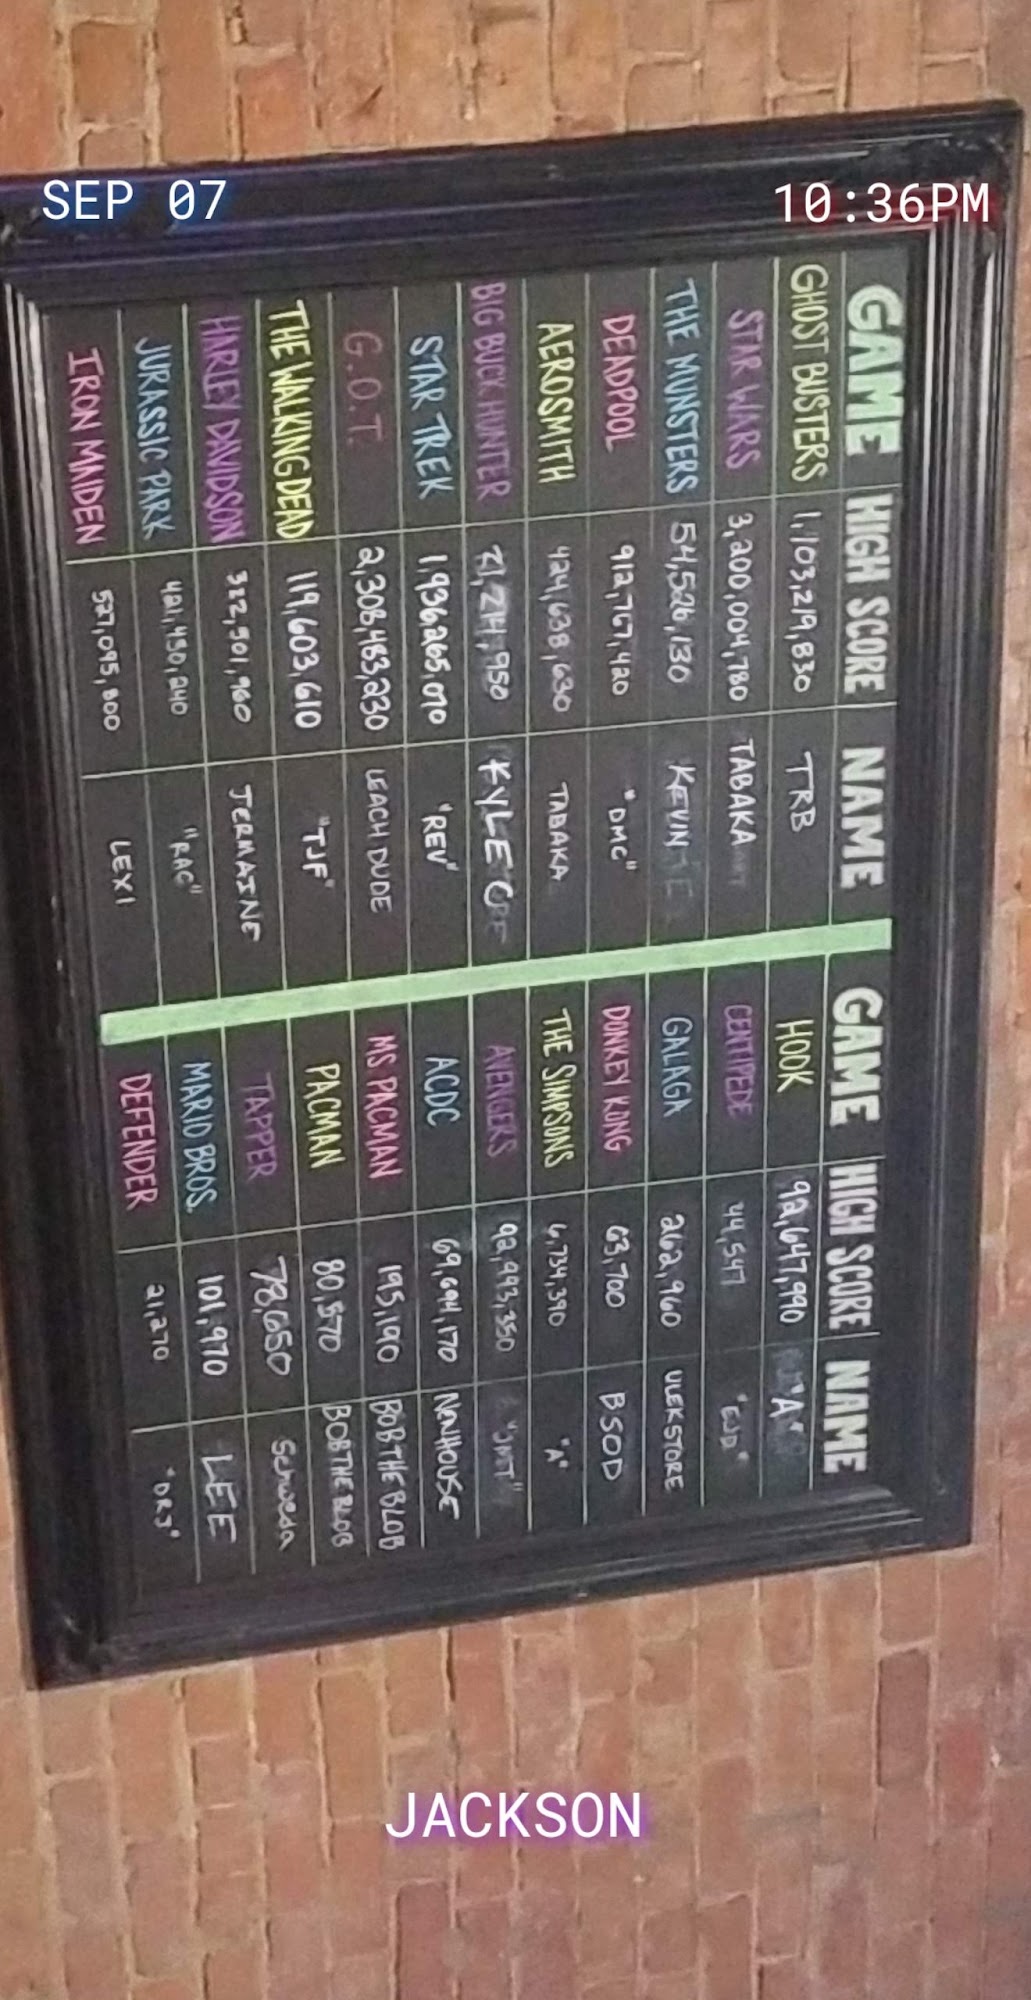 SEP 07 10:36PM
GAME HIGH SCORE NAME GAME HIGH SCORE NAME
GHOST BUSTERS 1,103,219,830 TRB HOOK 92,647,990 "A"
STAR WARS 3,200,004,780 TABAKA CENTIPEDE 44,547 "EJD"
THE MUNSTERS 54,526,130 KEVIN GALAGA 262,960 ULEKSTORE
DEADPOOL 912,767,420 "DMC" DONKEY KONG 63,700 BSOD
AEROSMITH 424,638,630 TABAKA THE SIMPSONS 6,734,390 "A"
BIG BUCK HUNTER KYLE AVENGERS 92,993,350
STAR TREK 1,936,265,070 "REV" ACDC 69,694,170 NEWHOUSE
G.O.T. 2,308,483,230 LEACH DUDE MS PACMAN 195,190 BOB THE BLOB
THE WALKING DEAD 119,603,610 "TJF" PACMAN 80,570 BOB THE BLOB
HARLEY DAVIDSON 322,501,960 JERMAINE TAPPER 78,650 Schweda
JURASSIC PARK 421,450,240 "RAG" MARIO BROS. 101,970 LEE
IRON MAIDEN 527,095,800 LEXI DEFENDER 21,270 "DRJ"
JACKSON